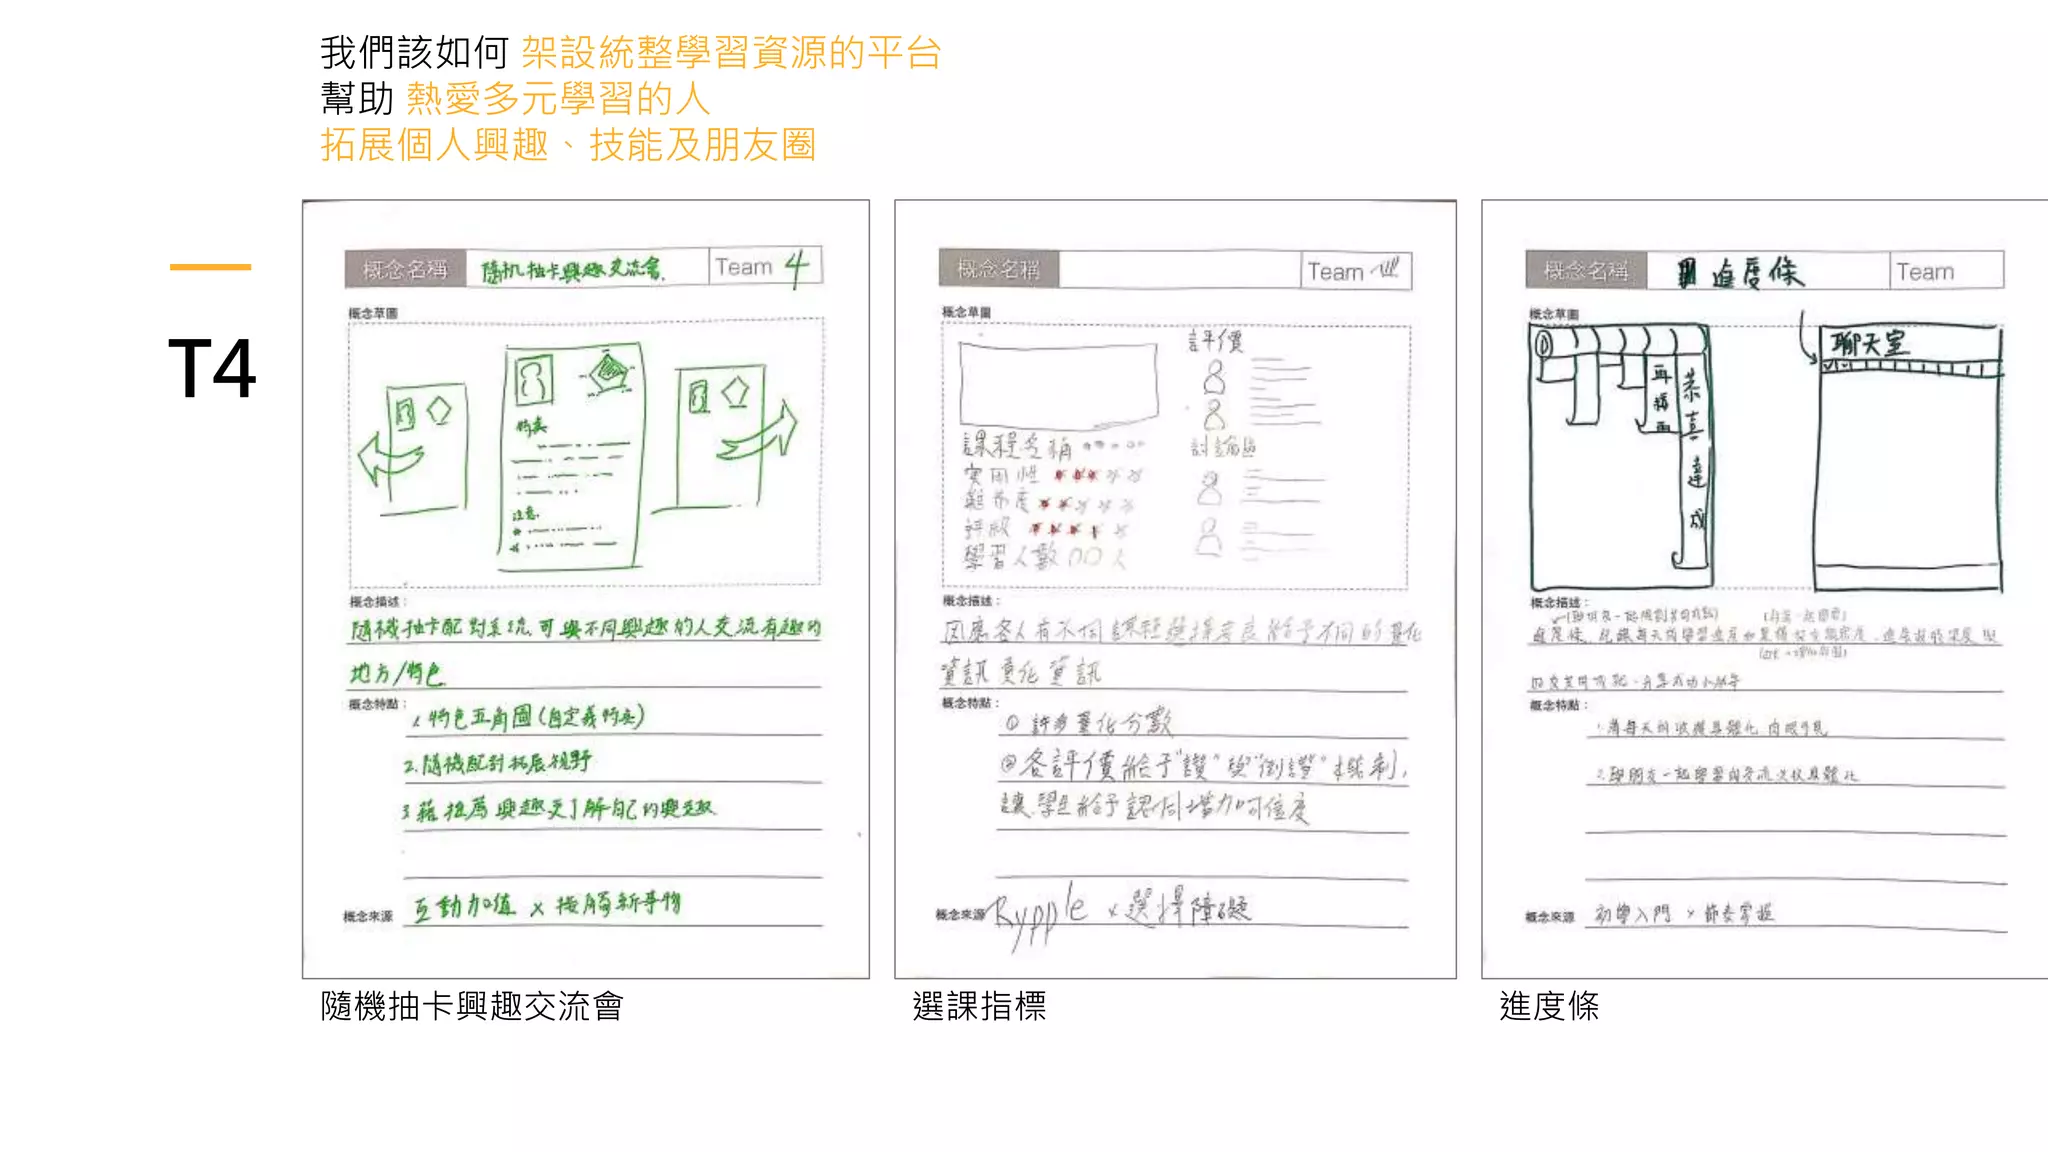 我們該如何 架設統整學習資源的平台
幫助 熱愛多元學習的人
拓展個人興趣、技能及朋友圈
T4
概念名稱 隨机抽卡興趣交流會. Team 4
概念草圖
特長
注意.
概念描述：
隨機抽卡配對系統,可與不同興趣的人交流有趣的
地方/特色
概念特點：
1. 特色五角圖(自定義特長)
2.隨機配對拓展視野
3.藉推薦興趣更了解自己的興趣
概念來源 互動加值 x 接觸新事物
隨機抽卡興趣交流會
概念名稱 Team
概念草圖
評價
課程名稱
討論區
實用性
難易度
評成
學習人數 〇〇人
概念描述：
因應各人有不同課程選擇
資訊 量化資訊
概念特點：
① 許多量化分數
②各評價給予"讚"與"倒讚"機制,
讓學員給予認同增加可信度
概念來源 Rypple x 選擇障礙
選課指標
概念名稱 進度條 Team
概念草圖
聊天室
再接再
恭喜達成
概念描述：
概念特點：
1.將每天的收穫具體化,肉眼可見
2.與朋友一起學習的交流文狀具體化
概念來源 初學入門 x 節奏掌握
進度條